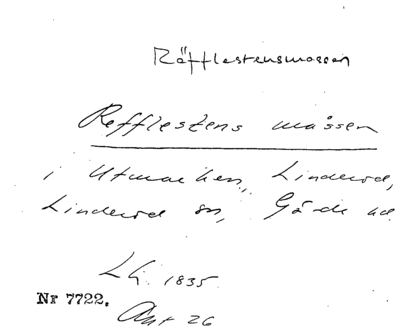 Räfflestensmossen
Refflestens måssen
i Utmarken, Linderöd,
Linderöd sn, Gärds hd
LG. 1835.
Nr 7722.
Akt 26